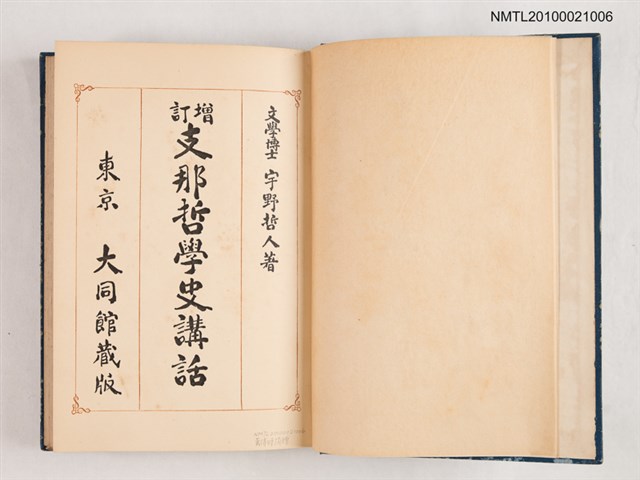 NMTL20100021006
文學博士 宇野哲人著
增訂
支那哲學史講話
東京 大同館藏版